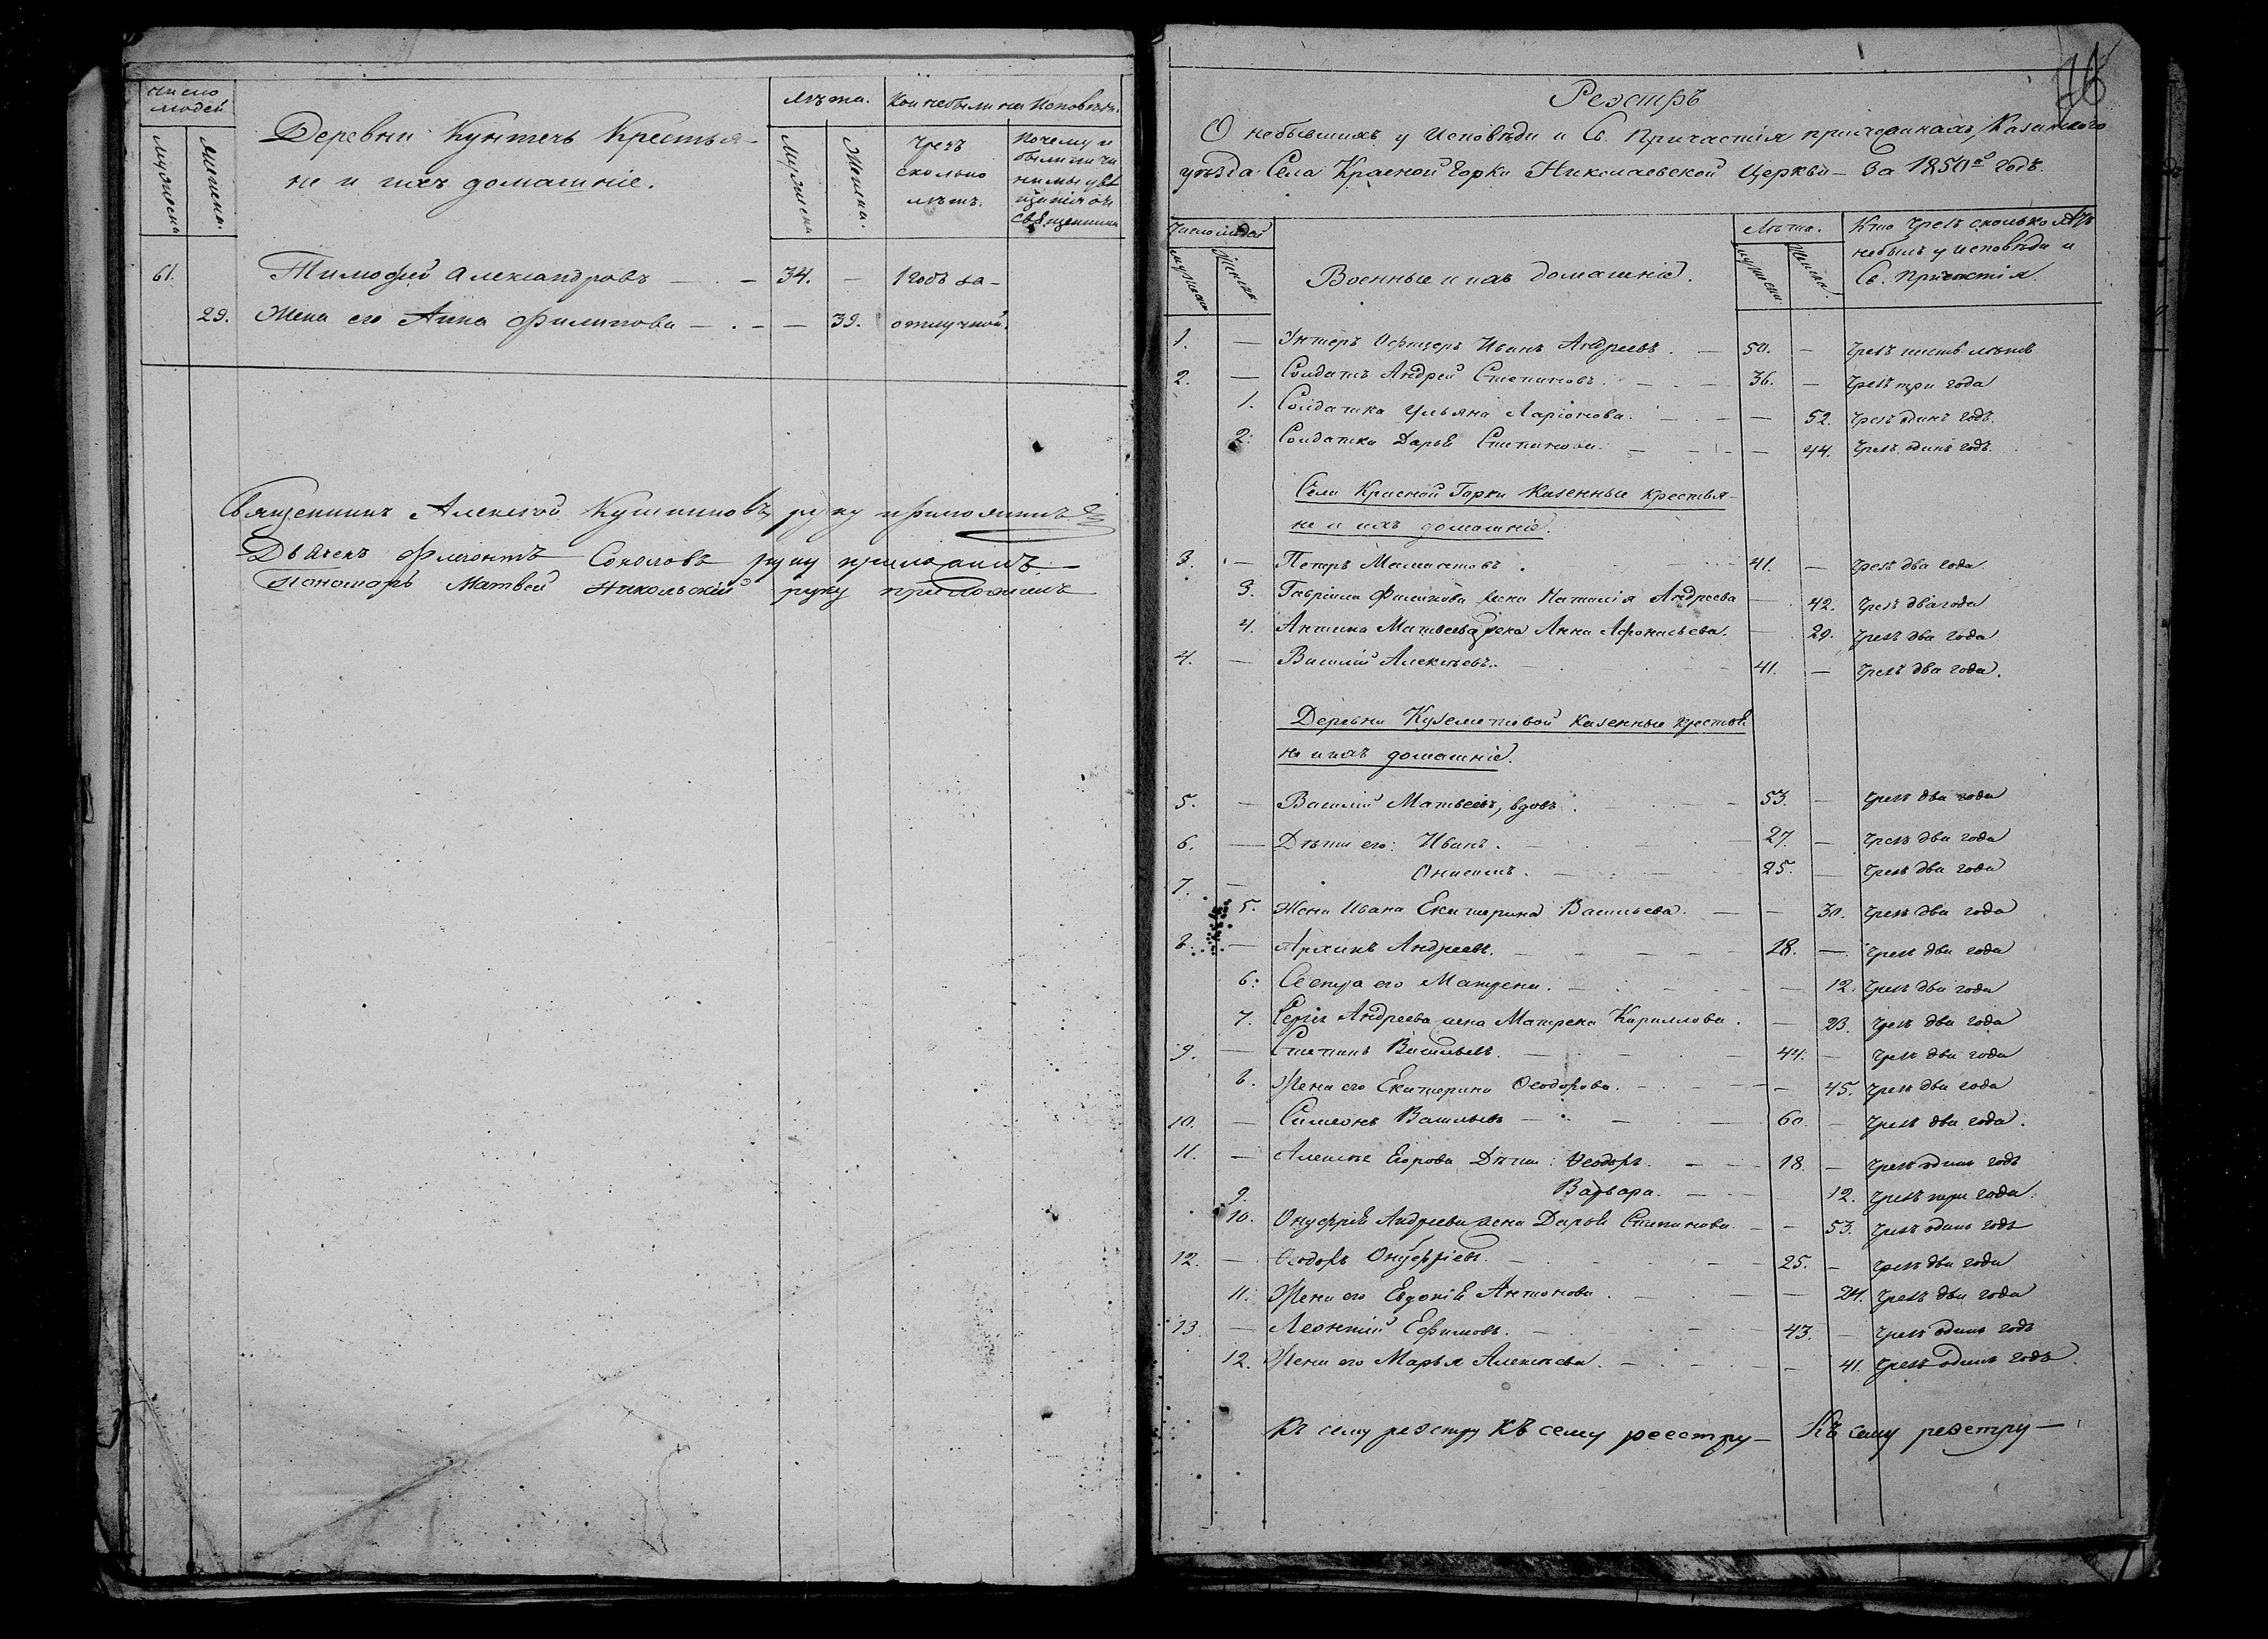 число людей
мужеска
женска.
Деревни Кунтечь Крестья-
не и ихъ домашніе.
лѣта.
Мужеска
Женска.
Кои небыли на Исповѣди.
чрезъ сколько лѣтъ.
почему и
священника
61. Тимофей Александровъ — . — 34. — 1 годъ за-
29. Жена его Анна Филипова — . — — 39. отлучкой.
Священникъ Алексей руку приложилъ
Дьячекъ Соколовъ руку приложилъ
Пономарь Матвей Никольскій руку приложилъ
Реэстръ
О небывшихъ у Исповѣди и Св. Причастія прихожанахъ, Казанскаго
уѣзда Села Красной Горки Николаевской Церкви — За 1850й годъ.
Число людей
мужеска
женска
Военные и ихъ домашніе.
Лѣта.
мужеска
женска.
Кто чрезъ сколько лѣтъ
небылъ у исповѣди и
Св. Причастія.
1. — Унтеръ Офицеръ Иванъ Андреевъ. — 50. — Чрезъ шесть лѣтъ
2. — Солдатъ Андрей Степановъ. — 36. — Чрезъ три года
1. Солдатка Ульяна Ларіонова. — — 52. Чрезъ одинъ годъ.
2. Солдатка Дарья Степанова. — — 44. Чрезъ одинъ годъ.
Села Красной Горки Казенные крестья-
не и ихъ домашніе.
3. — Петръ . — 41. — Чрезъ два года.
3. Гаврила Филипова жена Наталія Андреева — 42. Чрезъ два года
4. Антипа Матвеева жена Анна Афонасьева. — 29. Чрезъ два года
4. — Василій Алексѣевъ. — 41. — Чрезъ два года.
Деревни Куземетевой казенные крестья
не и ихъ домашніе.
5. — Василій Матвеевъ, вдовъ. — 53. — Чрезъ два года
6. — Дѣти его: Иванъ. — 27. — Чрезъ два года
7. — Онисимъ. — 25. — Чрезъ два года
5. Жена Ивана Екатерина Васильева. — — 30. Чрезъ два года
8. — Архипъ Андреевъ. — 18. — Чрезъ два года
6. Сестра его Матрена. — — 12. Чрезъ два года
7. Сергія Андреева жена Матрена Кириллова. — 23. Чрезъ два года
9. — Степанъ Васильевъ. — 44. — Чрезъ два года
8. Жена его Екатерина Ѳеодорова. — — 45. Чрезъ два года
10. — Симеонъ Васильевъ — 60. — Чрезъ два года.
11. — Алексѣя Егорова Дѣти: Ѳеодоръ. — 18. — Чрезъ одинъ годъ
9. Варвара. — 12. Чрезъ три года.
10. Онуфрія Андреева жена Дарья Степанова. — — 53. Чрезъ одинъ годъ
12. — Ѳеодоръ Онуфріевъ. — 25. — Чрезъ два года
11. Жена его Евдокія Антонова. — — 24. Чрезъ два года
13. — Леонтій Ефимовъ. — 43. — Чрезъ одинъ годъ
12. Жена его Марья Алексѣева. — — 41. Чрезъ одинъ годъ.
Къ сему реэстру Къ сему реестру — Къ сему реэстру —